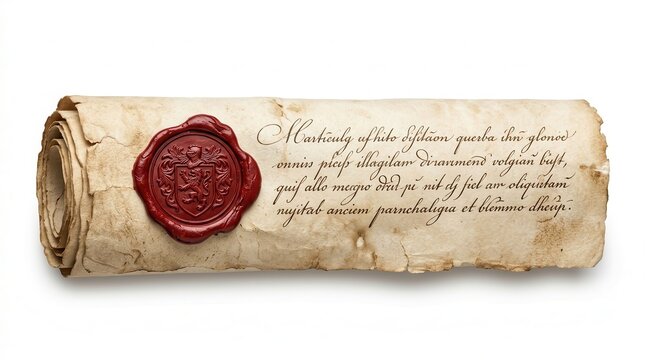 Martieulg uſhito diſitāon querba ihn̄ glonoe
onnis pleiſs illagitam dirammend volgian̄ biſt,
quiſ allo megro odud pi nit dſ ſiel am oliquitam̄
nujitab anciem parnchaligia et blēmmo dheup̄.